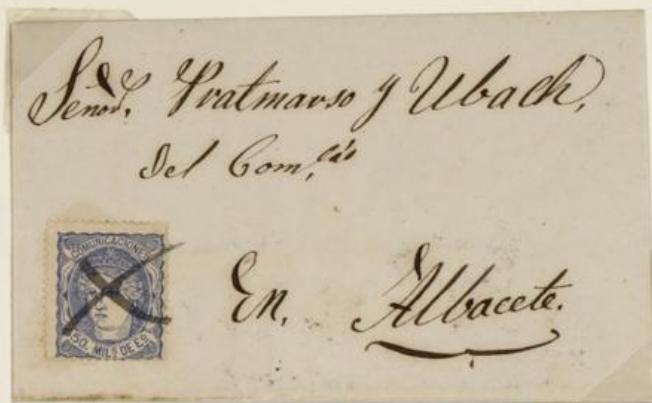 Señores. Pratmarso y Ubach,
del Com,cio
COMUNICACIONES
50. MILS DE EO
En, Albacete.